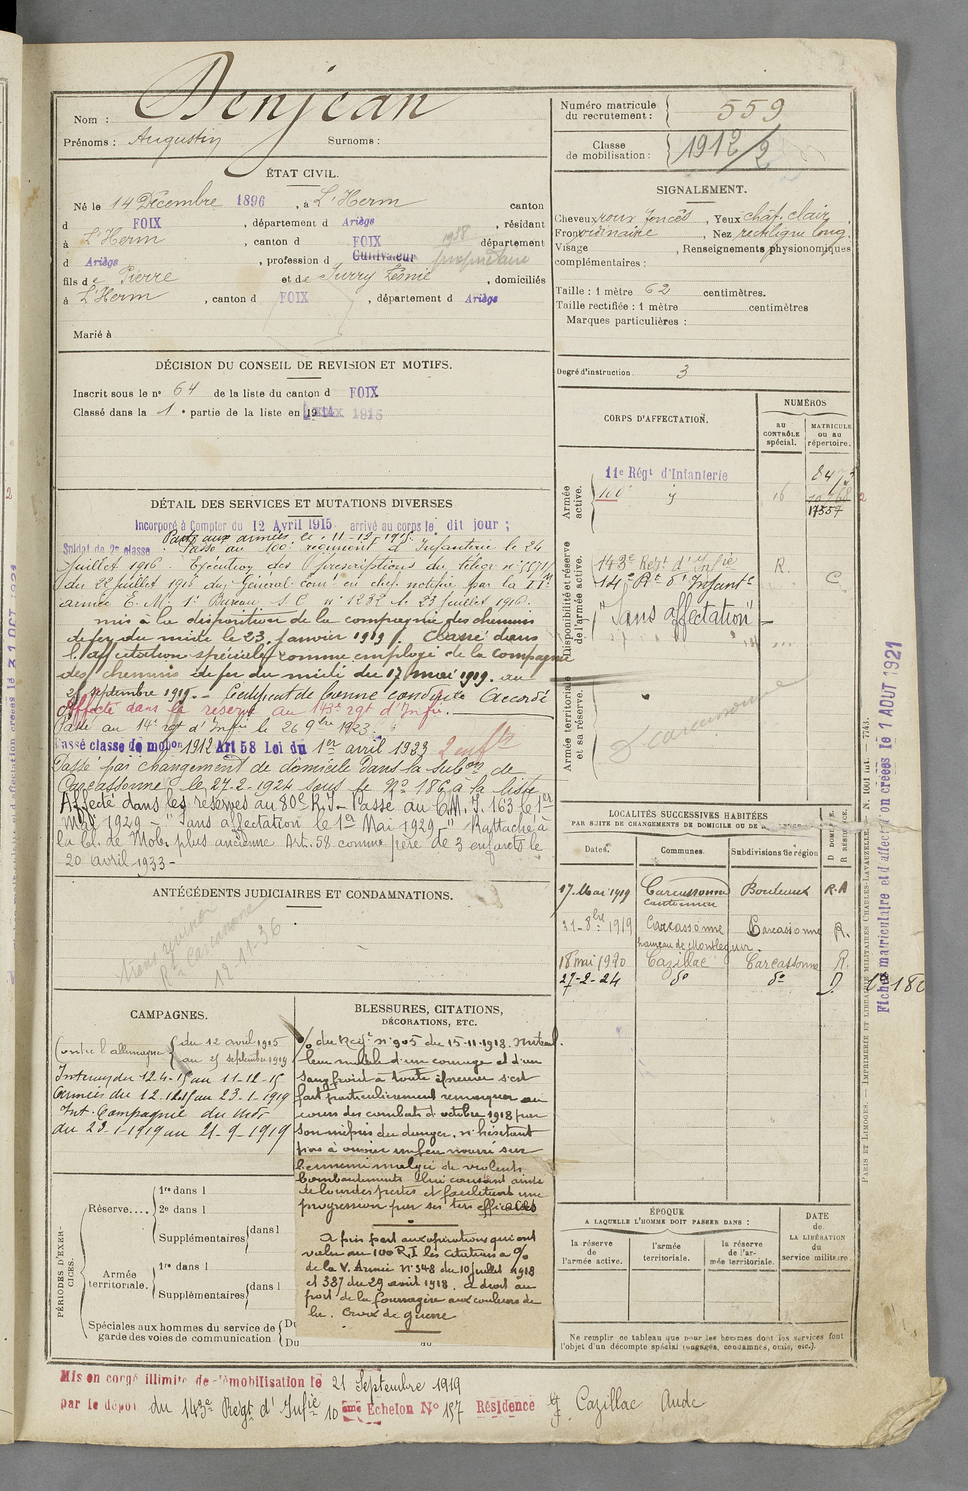 Nom : Denjean
Prénoms : Augustin Surnoms :
Numéro matricule du recrutement : 559
Classe de mobilisation : 1912/2
ÉTAT CIVIL.
Né le 14 Décembre 1896, à L'Herm canton
d FOIX, département d Ariège, résidant
à L'Herm, canton d FOIX 1938 département
d Ariège, profession d Cultivateur propriétaire
fils de Pierre et de Léonie, domiciliés
à L'Herm, canton d FOIX, département d Ariège
Marié à
SIGNALEMENT.
Cheveux roux foncés, Yeux chât. clair,
Front ordinaire, Nez rectiligne long.
Visage, Renseignements physionomiques
complémentaires :
Taille : 1 mètre 62 centimètres.
Taille rectifiée : 1 mètre centimètres
Marques particulières :
Degré d'instruction. 3
DÉCISION DU CONSEIL DE REVISION ET MOTIFS.
Inscrit sous le n° 64 de la liste du canton d FOIX
Classé dans la 1e partie de la liste en 1915
CORPS D'AFFECTATION.
NUMÉROS
AU CONTRÔLE spécial.
MATRICULE ou au répertoire.
Armée active.
11e Régt d'Infanterie
100e
16
17557
Disponibilité et réserve de l'armée active.
143e Régt d'Infie R.
14e Rt d'Infantie C
"Sans affectation"
Armée territoriale et sa réserve.
Carcassonne
DÉTAIL DES SERVICES ET MUTATIONS DIVERSES
Incorporé à Compter du 12 Avril 1915 arrivé au corps le dit jour ;
Soldat de 2e classe. Parti aux armées le 11-12-1915.
Passé au 100e régiment d'Infanterie le 24
Juillet 1916. Exécution des prescriptions du télégr n°
du 22 juillet 1916 du Général comt en chef notifié par la
armée E. M. 1er Bureau S.C n° 1282 du 23 juillet 1916.
mis à la disposition de la compagnie des chemins
de fer du midi le 23 janvier 1919. Classé dans
l'affectation spéciale comme employé de la compagnie
des chemins de fer du midi du 17 mai 1919 au
21 septembre 1919. - Certificat de bonne conduite Accordé
Affecté dans la réserve au 143e rgt d'Infie.
Passé au 14e rgt d'Infie le 26 9bre 1923
Passé classe de mobon 1912 Art 58 Loi du 1er avril 1923 2 enfts
Passé par changement de domicile dans la subon de
Carcassonne le 27-2-1924 sous le No 186 à la liste
Affecté dans les réserves au 80e R.I - Passé au C.M.I. 163 le 1er
Mai 1929 - "Sans affectation le 1er Mai 1929 -" Rattaché à
la cl. de Mob. plus ancienne Art. 58 comme père de 3 enfants le
20 avril 1933 -
LOCALITÉS SUCCESSIVES HABITÉES
PAR SUITE DE CHANGEMENTS DE DOMICILE OU DE
Dates. Communes. Subdivisions de région D DOMICILE. R RÉSIDENCE.
17 Mai 1919 Carcassonne Bordeaux R.A
cantonnier
31-8bre 1919 Carcassonne Carcassonne R.
hameau de Montlegun.
18 mai 1920 Cazillac Carcassonne R.
27-2-24 do do D. 186
ANTÉCÉDENTS JUDICIAIRES ET CONDAMNATIONS.
Carcassonne
12-11-36
CAMPAGNES.
Contre l'allemagne { du 12 avril 1915
au 21 septembre 1919
Intérieur du 12-4-15 au 11-12-15
Armées du 12.12.15 au 23-1-1919
Int. Compagnie du Midi
du 23-1-1919 au 21-9-1919
BLESSURES, CITATIONS,
DÉCORATIONS, ETC.
% du Regt n° 905 du 15-11-1918. Mitrail.
leur modèle d'un courage et d'un
sang froid à toute épreuve s'est
fait particulièrement remarquer au
cours des combats d'octobre 1918 par
son mépris du danger, n'hésitant
pas à ouvrir un feu nourri sur
l'ennemi malgré de violents
bombardements lui causant ainsi
de lourdes pertes et facilitant une
progression par ses tirs efficaces
A pris part aux opérations qui ont
valu au 100 R.I les citations à %
de la V. Armée n° 348 du 10 juillet 1918
et 387 du 29 avril 1918. A droit au
port de la fourragère aux couleurs de
la Croix de guerre
PÉRIODES D'EXERCICES.
Réserve.... 1re dans l
2e dans l
Supplémentaires dans l
Armée territoriale. 1re dans l
Supplémentaires dans l
Spéciales aux hommes du service de garde des voies de communication Du
Du au
ÉPOQUE
A LAQUELLE L'HOMME DOIT PASSER DANS :
la réserve de l'armée active.
l'armée territoriale.
la réserve de l'armée territoriale.
DATE de LA LIBÉRATION du service militaire.
Ne remplir ce tableau que pour les hommes dont les services font
l'objet d'un décompte spécial (engagés, condamnés, omis, etc.).
Mis en congé illimité de démobilisation le 21 Septembre 1919
par le dépôt du 143e Régt d'Infie 10 ème Echelon No 157 Résidence Cazillac Aude
PARIS ET LIMOGES. — IMPRIMERIE ET LIBRAIRIE MILITAIRES CHARLES-LAVAUZELLE.
Fiches matriculaire et d'affection créées le 1 AOUT 1921